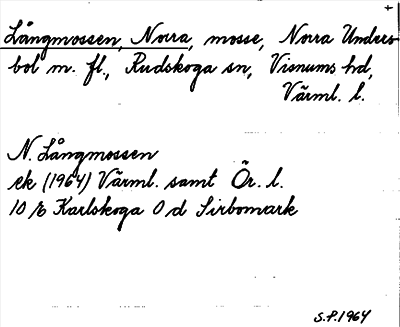 Långmossen, Norra, mosse, Norra Unders-
bol m. fl., Rudskoga sn, Visnums hd,
Värml. l.
N. Långmossen
ek (1964) Värml. samt Ör. l.
10 E Karlskoga O d Sirbomark
S.P. 1964